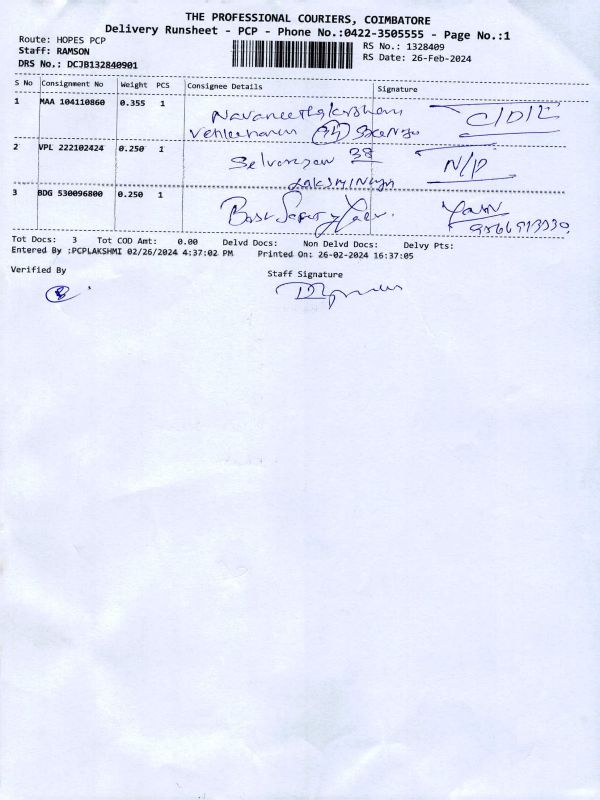 THE PROFESSIONAL COURIERS, COIMBATORE
Delivery Runsheet - PCP - Phone No.:0422-3505555 - Page No.:1
Route: HOPES PCP
Staff: RAMSON
DRS No.: DCJB132840901
RS No.: 1328409
RS Date: 26-Feb-2024
S No Consignment No Weight PCS Consignee Details Signature
1 MAA 104110860 0.355 1
C/D/L
2 VPL 222102424 0.250 1
38
N/P
3 BDG 530096800 0.250 1
Tot Docs: 3 Tot COD Amt: 0.00 Delvd Docs: Non Delvd Docs: Delvy Pts:
Entered By :PCPLAKSHMI 02/26/2024 4:37:02 PM Printed On: 26-02-2024 16:37:05
Verified By
Staff Signature